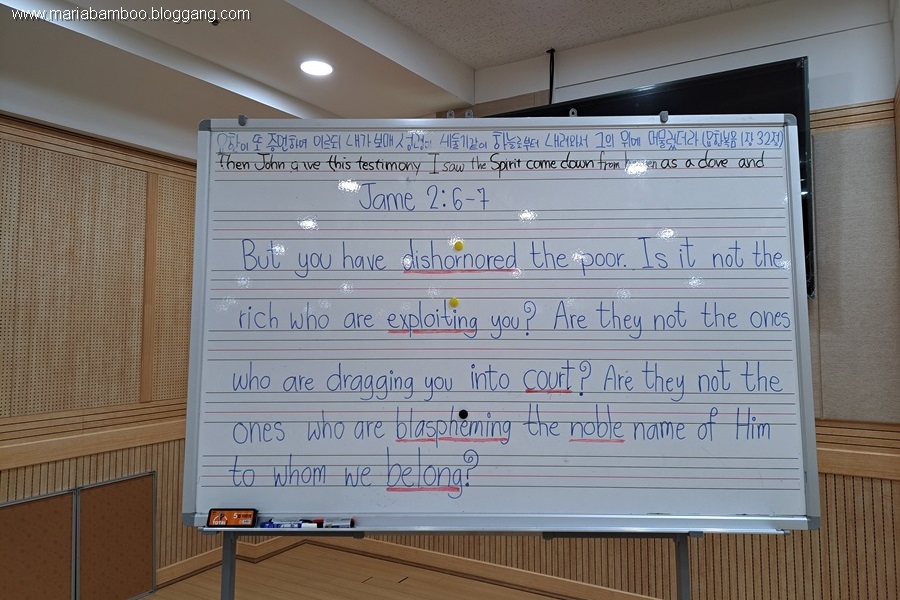 www.mariabamboo.bloggang.com
요한이 또 증언하여 이르되 내가 보매 성령이 비둘기같이 하늘로부터 내려와서 그의 위에 머물렀더라 (요한복음 1장 32절)
Then John gave this testimony I saw the Spirit come down from heaven as a dove and
Jame 2:6-7
But you have dishornored the poor. Is it not the
rich who are exploiting you? Are they not the ones
who are dragging you into court? Are they not the
ones who are blaspheming the noble name of Him
to whom we belong?